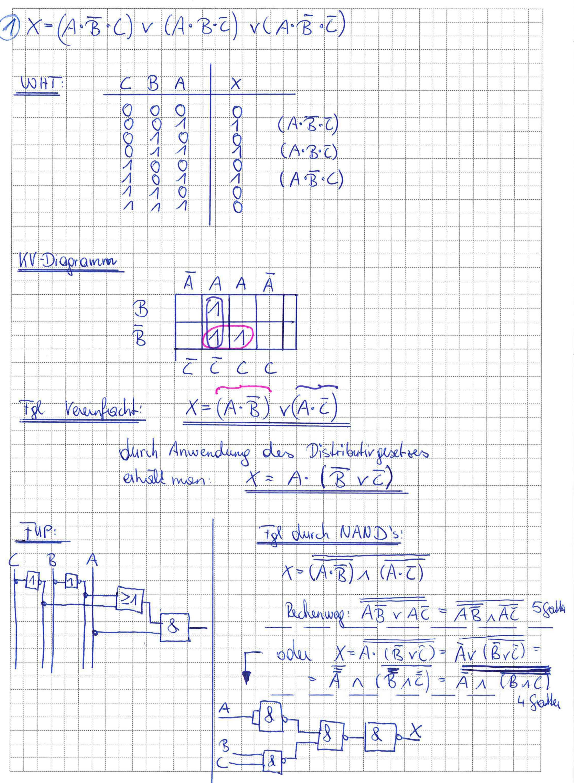 1 X = (A·B̅·C) v (A·B·C̅) v (A·B̅·C̅)
WHT: C B A X
0 0 0 0
0 0 1 1 (A·B̅·C̅)
0 1 0 0
0 1 1 1 (A·B·C̅)
1 0 0 0
1 0 1 1 (A·B̅·C)
1 1 0 0
1 1 1 0
KV-Diagramm
A̅ A A A̅
B 1
B̅ 1 1
C̅ C̅ C C
Fgl Vereinfacht: X = (A·B̅) v (A·C̅)
durch Anwendung des Distributivgesetzes
erhält man: X = A·(B̅ v C̅)
FUP:
C B A
1 1
≥1
&
Fgl durch NAND's:
Rechenweg: 5 Gatter
oder
4 Gatter
A & & & X
B
C &